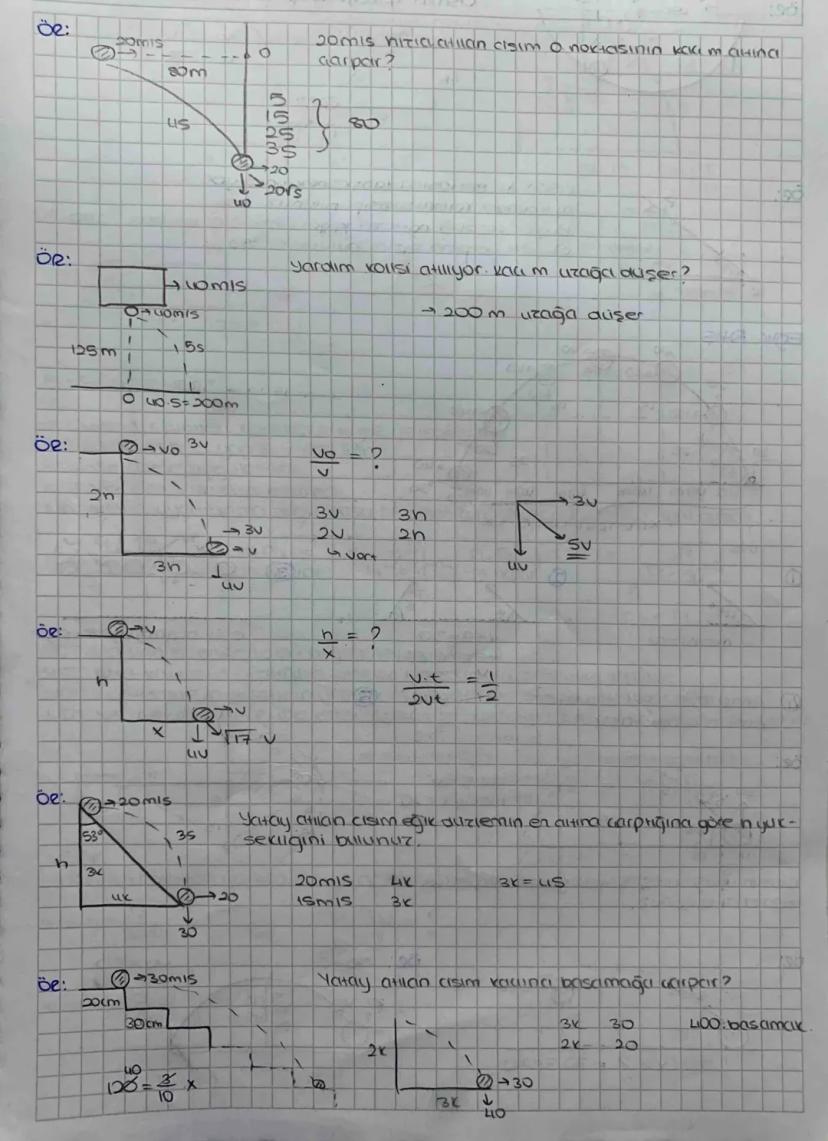 ÖR:
20m/s
80m
O
20m/s hızla atılan cisim O noktasının kaç m altına
çarpar?
4s
5
15
25
35
80
20
20√5
40
ÖR:
Yardım kolisi atılıyor. Kaç m uzağa düşer?
40m/s
40m/s
→ 200m uzağa düşer
125m
5s
O 40.5=200m
ÖR:
V0 3V
V0/V = ?
2h
3V 3h
2V 2h
↳ Vort
3V
V
3h
4V
3V
5V
4V
ÖR:
V
h/x = ?
h
V.t/2Vt = 1/2
V
x
√17 V
4V
ÖR:
20m/s
Yatay atılan cisim eğik düzlemin en altına çarptığına göre h yük-
sekliğini bulunuz.
53°
3s
h
3k
4k
20
30
20m/s 4k 3k = 45
15m/s 3k
ÖR:
30m/s
Yatay atılan cisim kaçıncı basamağa çarpar?
20cm
30cm
2k
3k 30 400. basamak
2k 20
30
3k
40
40
120 = 3/10 x